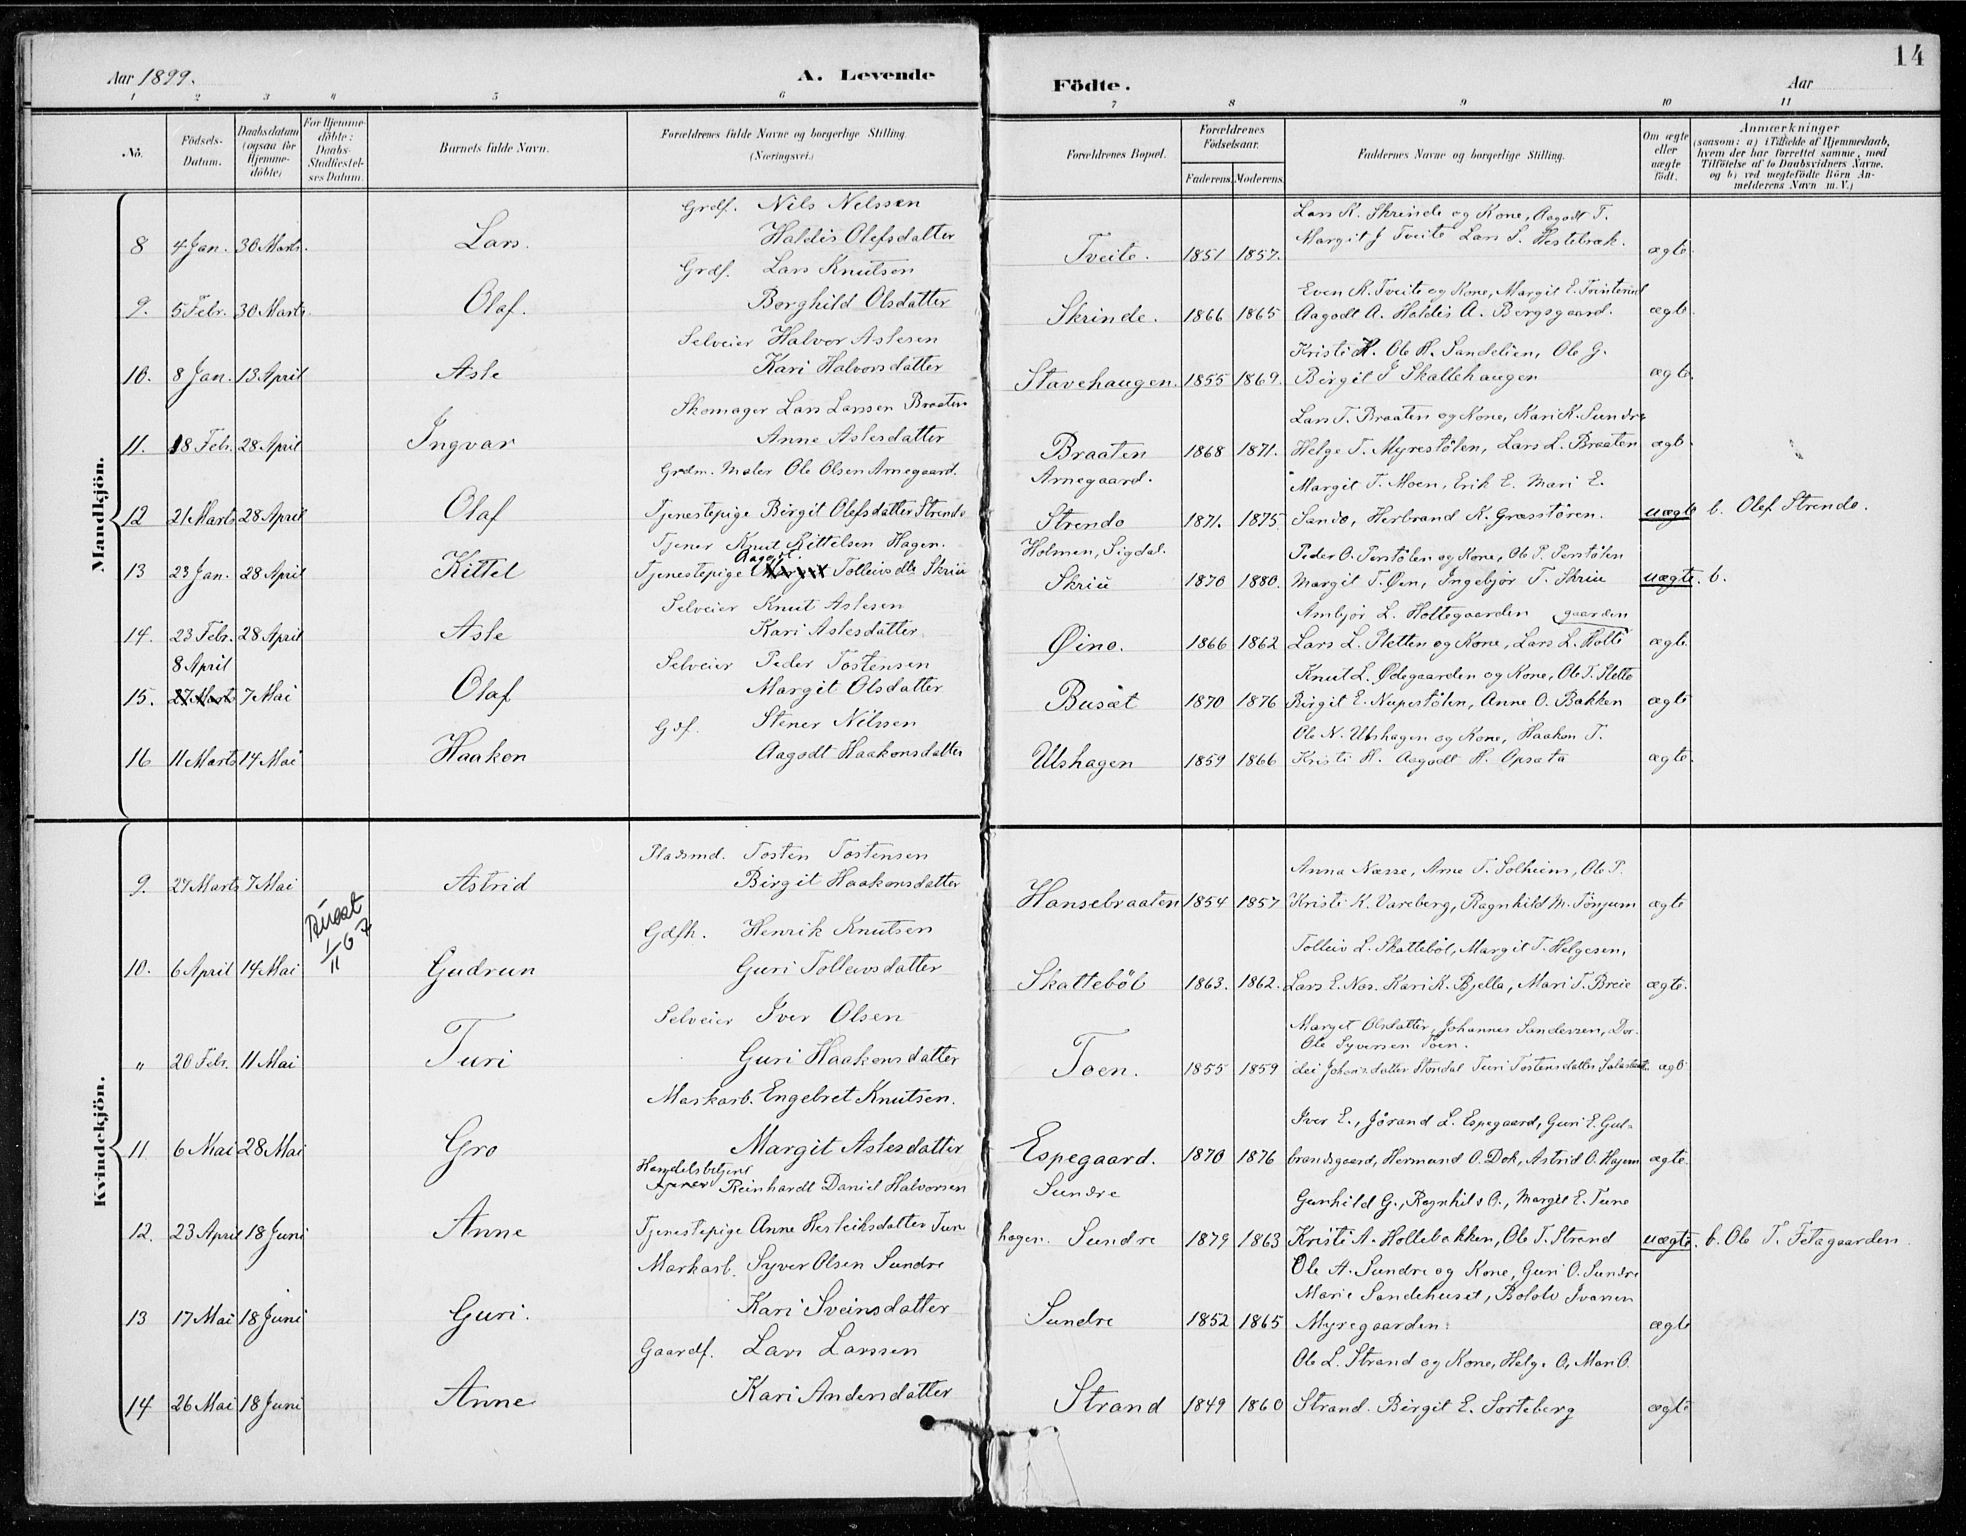 14
Aar 1899.
A. Levende
Födte.
Aar
1 2 3 4 5 6 7 8 9 10 11
No.
Födsels-Datum.
Daabsdatum (ogsaa for Hjemmedöbte)
For Hjemmedöbte: Daabs-Stadfæstelses Datum.
Barnets fulde Navn.
Forældrenes fulde Navne og borgerlige Stilling. (Næringsvei.)
Forældrenes Bopæl.
Forældrenes Födselsaar.
Faderens. Moderens.
Faddernes Navne og borgerlige Stilling.
Om ægte eller uægte födt.
Anmærkninger
(saasom: a) i Tilfælde af Hjemmedaab, hvem der har forrettet samme, med Tilföielse af to Daabsvidners Navne, og b) ved uægtefödte Börn Anmelderens Navn m. V.)
Mandkjön.
Grdf. Nils Nilssen
Lars K. Skrinde og Kone, Aagodt T.
8 4 Jan. 30 Marts. Lars. Haldis Olefsdatter Tveito. 1851 1857. Margit J Tveito Lars S. Hestebræk. ægte.
Grdf. Lars Knutsen
Even K. Tveito og Kone, Margit E.
9. 5 Febr. 30 Marts. Olaf. Borghild Olsdatter Skrinde. 1866 1865 Aagodt A. Haldis A. Bergsgaard. ægte.
Selveier Halvor Aslesen
Kristi H. Ole H. Sandelien, Ole G.
10. 8 Jan. 13 April Asle Kari Halvorsdatter Stavehaugen. 1855 1869. Birgit S Skallehaugen ægte.
Skomager Lars Larssen Braaten
Lars T. Braaten og Kone, Kari K. Sundre
11. 18 Febr. 28 April Ingvar Anne Aslesdatter Braaten 1868 1871. Helge T. Myrestölen, Lars L. Braaten ægte.
Grdm. Maler Ole Olsen Arnegaard. Arnegaard.
Margit T. Moen, Erik E. Mari E.
12 21 Marts 28 April Olaf Tjenestepige Birgit Olefsdatter Strendo Strendo 1871. 1875 Sando, Herbrand K. Græsstören. uægte b. Olef Strendo.
Tjener Knut Kittelsen Hagen. Holmen, Sigdal.
Peder O. Perstölen og Kone, Ole P. Perstölen
Aagot.
13 23 Jan. 28 April Kittel Tjenestepige Tolleivsdtr Skriu Skriu 1870 1880. Margit T. Øen, Ingebjør T. Skriu uægte. b.
Selveier Knut Aslesen
Ambjør L. Holtegaarden gaarden
14. 23 Febr. 28 April Asle Kari Aslesdatter Øino. 1866 1862 Lars L. Sletten og Kone, Lars L. Holte ægte
8 April
Selveier Peder Tostensen
Knut L. Ødegaarden og Kone, Ole T. Slette
15. 27 Marts 7 Mai Olaf Margit Olsdatter Busæt 1870 1876 Birgit E. Nupestölen, Anne O. Bakken ægte
Gdf. Stener Nilssen
Ole N. Ulshagen og Kone, Haakon T.
16 11 Marts 14 Mai Haakon Aagodt Haakonsdatter Ulshagen 1859 1866 Kristi H. Aagodt H. Opsata ægte.
Kvindekjön.
Pladsmd. Tosten Tostensen
Anna Næsse, Arne T. Solheim, Ole P.
9. 27 Marts 7 Mai Astrid Birgit Haakonsdatter Hansebraaten 1854 1857 Kristi K. Vareberg, Ragnhild M. Tönjum ægte
1/11 67
Gdfh. Henrik Knutsen
Tolleiv L. Skattebøl, Margit T. Helgesen,
10. 6 April 14 Mai Gudrun Guri Tolleivsdatter Skattebøl 1863. 1862. Lars E. Nos. Kari K. Bjella, Mari T. Breie ægte.
Selveier Iver Olsen
Marget Olsdatter, Johannes Sanderssen, Dor-
Ole Syversen Toen.
" 20 Febr. 11 Mai Turi Guri Haakonsdatter Toen. 1855 1859 Turi Tostensdatter ægte
Markarb. Engebret Knutsen.
Iver E., Jørand L. Espegaard, Guri E. Gul-
11 6 Mai 28 Mai Gro Margit Aslesdatter Espegaard. 1870 1876 brandsgaard, Hermund O. Dok, Astrid O. Hagen ægte.
Handelsbetjent
Tjener Reinhardt Daniel Halvorsen Sundre
Gunhild G., Ragnhild O., Margit E. Tuno
12. 23 April 18 Juni Anne Tjenestepige Anne Herleiksdatter Tun hagen. Sundre 1879 1863 Kristi A. Hollebakken, Ole T. Strand uægte. b. Ole T. Fetagaarden.
Markarb. Syver Olsen Sundre
Ole A. Sundre og Kone, Guri O. Sundre
Marie Sandehuset,
13 17 Mai 18 Juni Guri. Kari Sveinsdatter Sundre 1852 1865 Myregaarden. ægte
Gaardf. Lars Larssen
Ole L. Strand og Kone, Helge O, Mari O.
14 26 Mai 18 Juni Anne Kari Andersdatter Strand 1849 1860 Strand. Birgit E. Sorteberg ægte